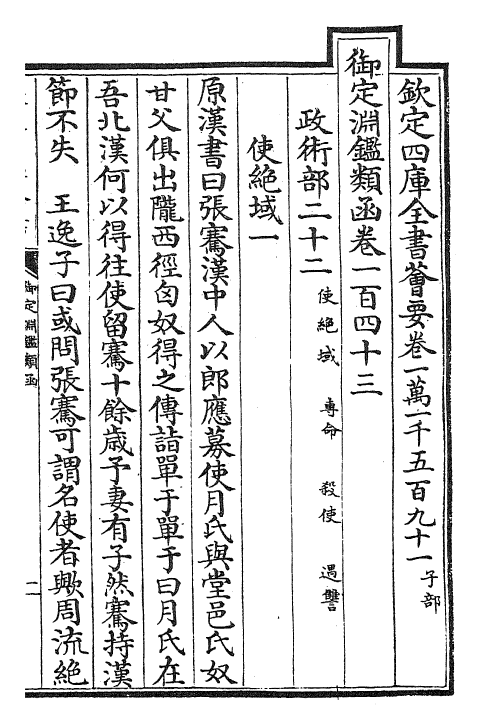 欽定四庫全書薈要卷一萬一千五百九十一 子部
御定淵鑑類函卷一百四十三
政術部二十二 使絶域 専命 殺使 遇讐
使絶域一
原漢書曰張騫漢中人以郎應募使月氏與堂邑氏奴
甘父俱出隴西徑匈奴得之傳詣單于單于曰月氏在
吾北漢何以得往使留騫十餘歳予妻有子然騫持漢
節不失 王逸子曰或問張騫可謂名使者歟周流絶
御定淵鑑類函
二